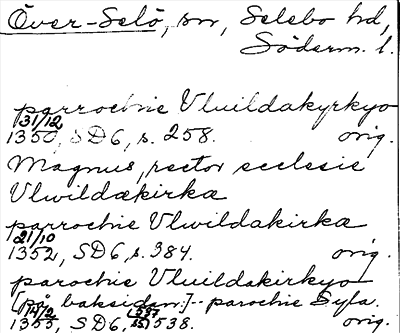 Över-Selö, sn, Selebo hd,
Söderm. l.
parrochie Vluildakyrkyo
31/12
1350, SD6, s. 258. orig.
Magnus, rector ecclesie
Vlwildækirkæ
parrochie Vlwildakirkæ
21/10
1352, SD6, s. 384. orig.
parochie Vluildakirkyo
[på baksidan:] -- parochie Syla.
1355, SD6, 538. orig.